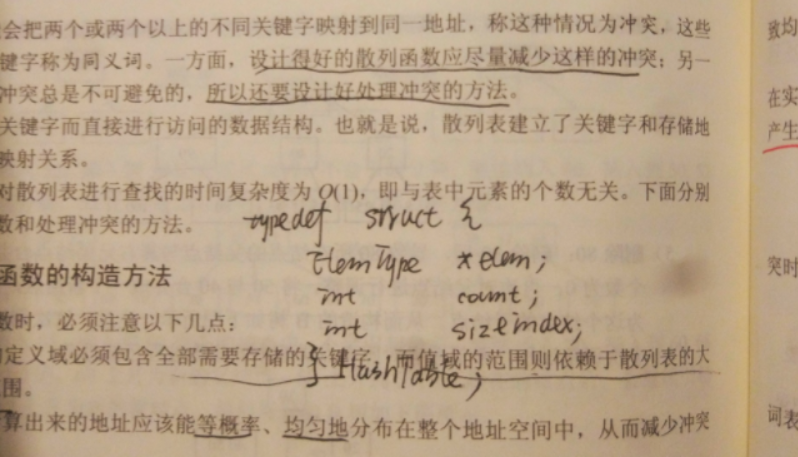 会把两个或两个以上的不同关键字映射到同一地址，称这种情况为冲突，这些
键字称为同义词。一方面，设计得好的散列函数应尽量减少这样的冲突；另一
冲突总是不可避免的，所以还要设计好处理冲突的方法。
关键字而直接进行访问的数据结构。也就是说，散列表建立了关键字和存储地
映射关系。
对散列表进行查找的时间复杂度为 O(1)，即与表中元素的个数无关。下面分别
数和处理冲突的方法。
typedef struct {
ElemType *elem;
函数的构造方法
int count;
数时，必须注意以下几点：
int sizeindex;
定义域必须包含全部需要存储的关键字，而值域的范围则依赖于散列表的大
} HashTable;
围。
算出来的地址应该能等概率、均匀地分布在整个地址空间中，从而减少冲突
致均
在实
产生
突时
词表